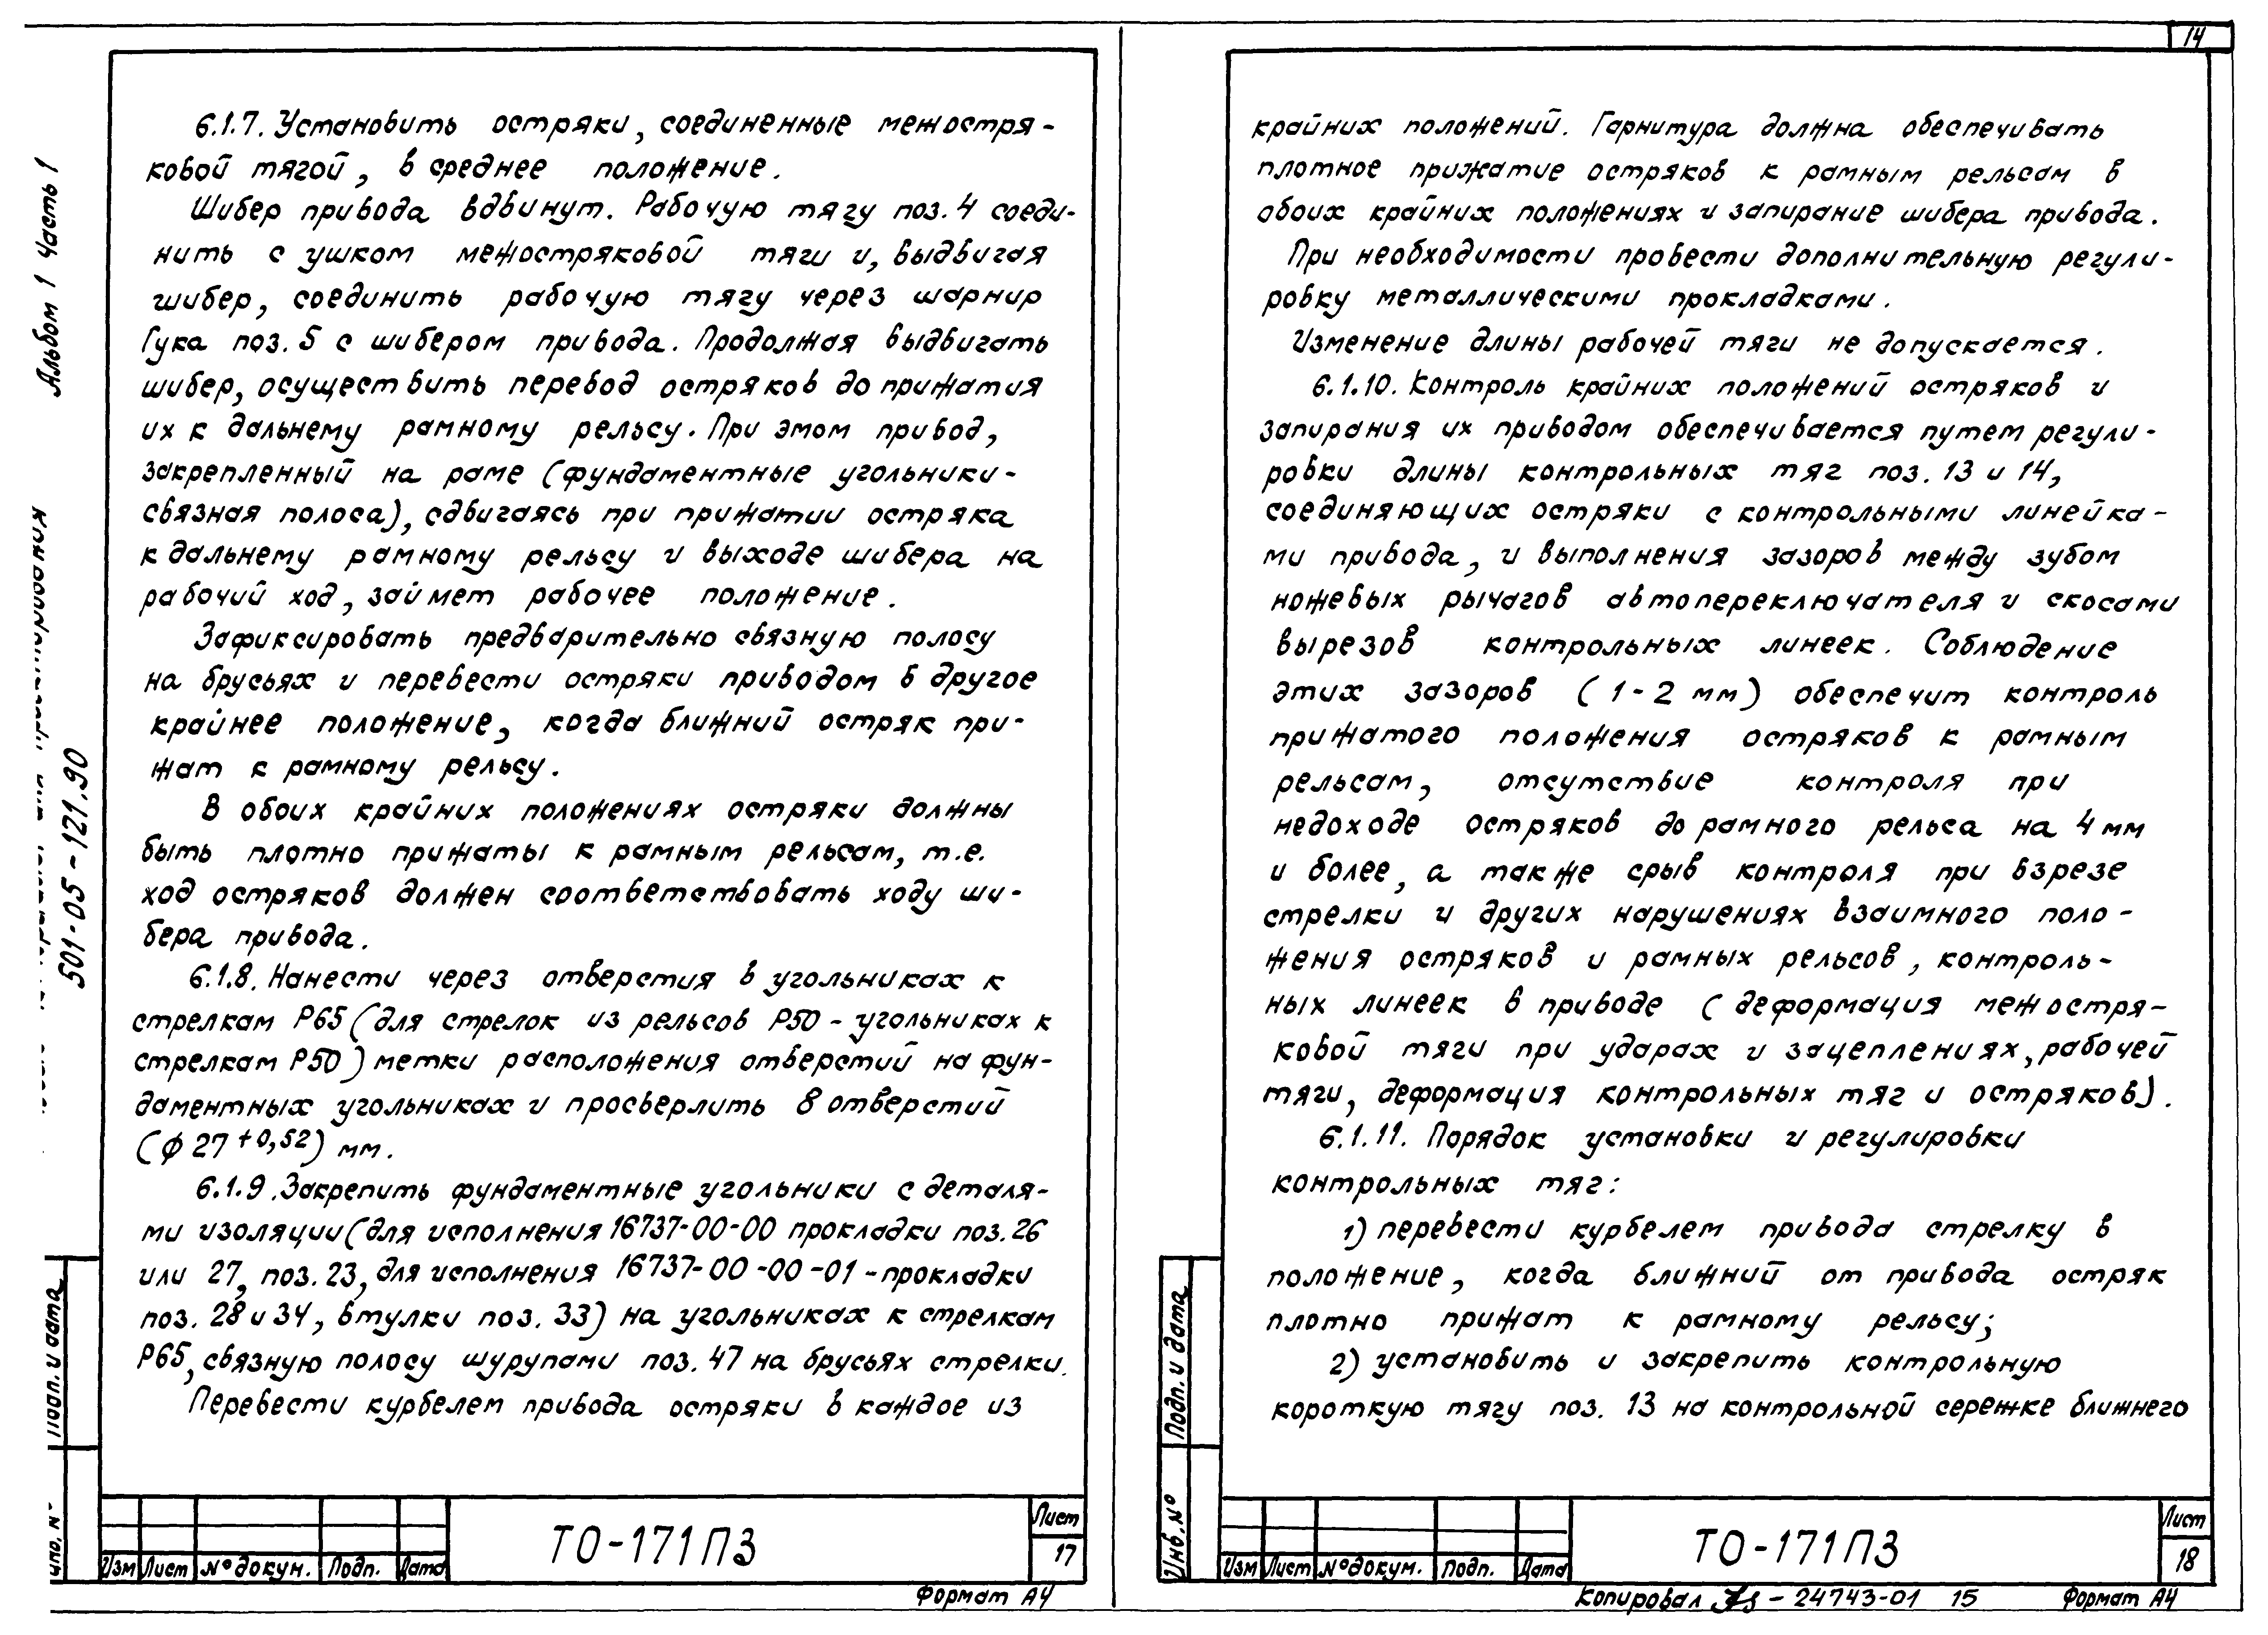 14
6.1.7. Установить остряки, соединенные межостря-
ковой тягой, в среднее положение.
Шибер привода вдвинут. Рабочую тягу поз. 4 соеди-
нить с ушком межостряковой тяги и, выдвигая
шибер, соединить рабочую тягу через шарнир
Гука поз. 5 с шибером привода. Продолжая выдвигать
шибер, осуществить перевод остряков до прижатия
их к дальнему рамному рельсу. При этом привод,
закрепленный на раме (фундаментные угольники-
связная полоса), сдвигаясь при прижатии остряка
к дальнему рамному рельсу и выходе шибера на
рабочий ход, займет рабочее положение.
Зафиксировать предварительно связную полосу
на брусьях и перевести остряки приводом в другое
крайнее положение, когда ближний остряк при-
жат к рамному рельсу.
В обоих крайних положениях остряки должны
быть плотно прижаты к рамным рельсам, т.е.
ход остряков должен соответствовать ходу ши-
бера привода.
6.1.8. Нанести через отверстия в угольниках к
стрелкам Р65 (для стрелок из рельсов Р50 - угольниках к
стрелкам Р50) метки расположения отверстий на фун-
даментных угольниках и просверлить 8 отверстий
(ϕ 27 +0,52) мм.
6.1.9. Закрепить фундаментные угольники с деталя-
ми изоляции (для исполнения 16737-00-00 прокладки поз. 26
или 27, поз. 23, для исполнения 16737-00-00-01 - прокладки
поз. 28 и 34, втулки поз. 33) на угольниках к стрелкам
Р65, связную полосу шурупами поз. 47 на брусьях стрелки.
Перевести курбелем привода остряки в каждое из
Альбом 1 Часть 1
501-05-121.90
Подп. и дата
Изм Лист № докум. Подп. Дата
ТО-171 ПЗ
Лист
17
Формат А4
крайних положений. Гарнитура должна обеспечивать
плотное прижатие остряков к рамным рельсам в
обоих крайних положениях и запирание шибера привода.
При необходимости провести дополнительную регули-
ровку металлическими прокладками.
Изменение длины рабочей тяги не допускается.
6.1.10. Контроль крайних положений остряков и
запирания их приводом обеспечивается путем регули-
ровки длины контрольных тяг поз. 13 и 14,
соединяющих остряки с контрольными линейка-
ми привода, и выполнения зазоров между зубом
ножевых рычагов автопереключателя и скосами
вырезов контрольных линеек. Соблюдение
этих зазоров (1-2 мм) обеспечит контроль
прижатого положения остряков к рамным
рельсам, отсутствие контроля при
недоходе остряков до рамного рельса на 4 мм
и более, а также срыв контроля при взрезе
стрелки и других нарушениях взаимного поло-
жения остряков и рамных рельсов, контроль-
ных линеек в приводе (деформация межостря-
ковой тяги при ударах и зацеплениях, рабочей
тяги, деформация контрольных тяг и остряков).
6.1.11. Порядок установки и регулировки
контрольных тяг:
1) перевести курбелем привода стрелку в
положение, когда ближний от привода остряк
плотно прижат к рамному рельсу;
2) установить и закрепить контрольную
короткую тягу поз. 13 на контрольной сережке ближнего
Подп. и дата
Инв. №
Изм Лист № докум. Подп. Дата
ТО-171 ПЗ
Лист
18
Копировал - 24743-01 15
Формат А4